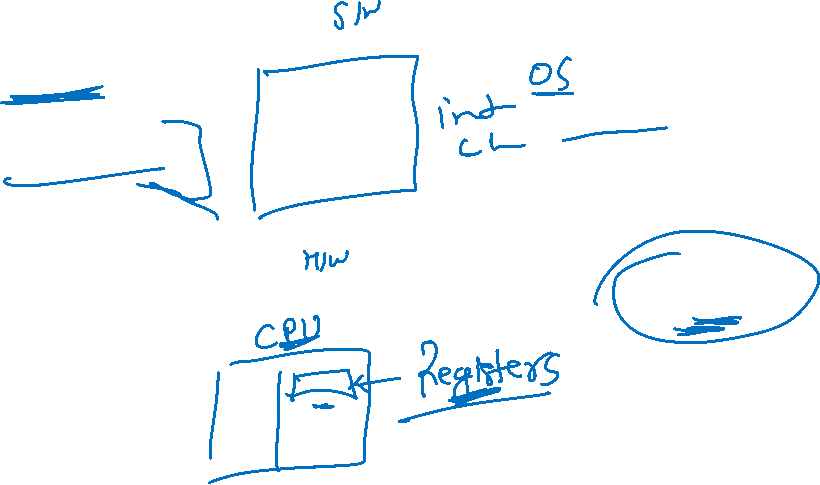 S/W
OS
int
ch
H/W
CPU
Registers